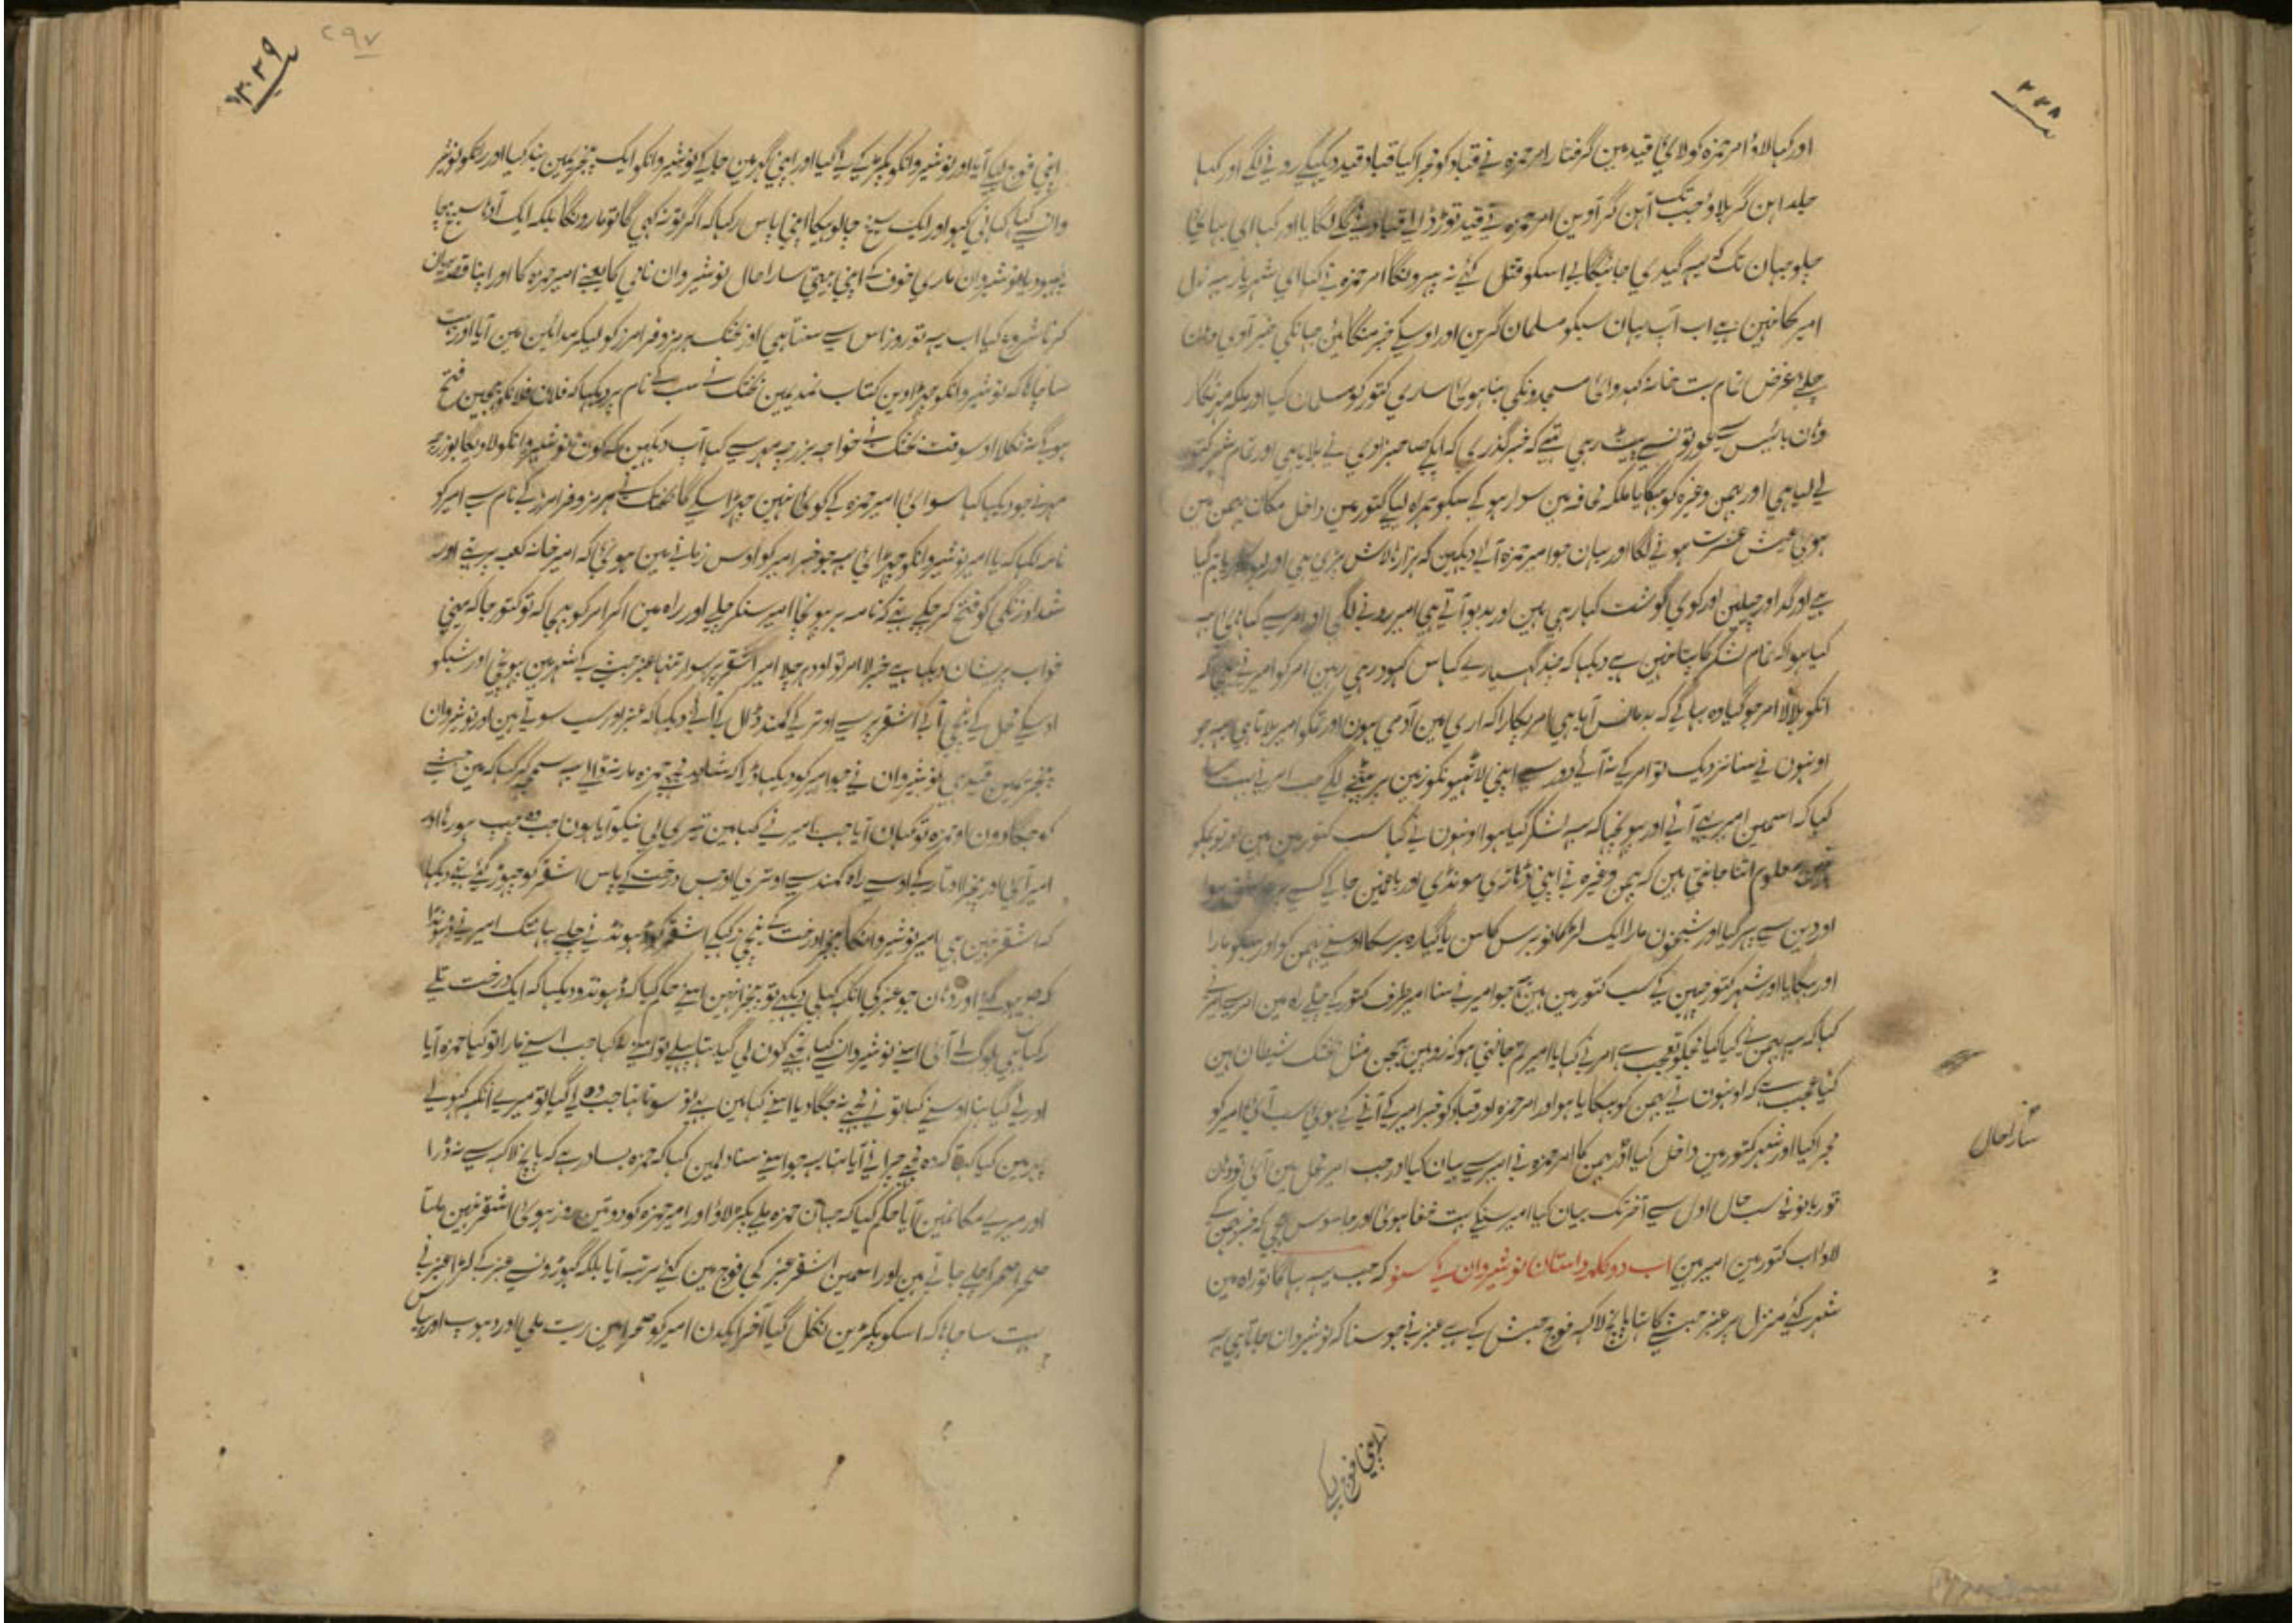 ۳۳۸
اور کہا لاؤ امر حمزہ کو لائی قید مین گرفتار امر حمزہ نی قباد کو مجرا کیا قباد قید دیکہکی رونی لگے اور کہا
جلد اہن گر بلاؤ جب تک آہن گر آوین امر حمزہ نی قید توڑ ڈالی قباد نی گلے لگایا اور کہا ای بہائی
چلو جہان تک یہ گیدی جائیگا بی اسکو قتل کئے نہ پہرونگا امر حمزہ نی کہا ای شہریار یہ
امیر کا نہین ہے اب آپ یہان سبکو مسلمان کرین اور اوسکے خبر منگائین جہانکی خبر آوی وہان
چلے غرض تمام بت خانہ کہدوائی مسجدونکی بنا ہوئی ساری کتور کو مسلمان کیا اور ملکہ مہرنگار
وہان بائیس سی عورتونسے بیٹہ رہی تہے کہ خبر گذری کہ ایکے صاحبزادی نی بلایا ہی اور تمام شہر کتور
لے لیا ہی اور بہمن وغیرہ کو بہگایا ملکہ محافہ مین سوار ہو کے سبکو ہمراہ لیکے کتور مین داخل مکان بہمن مین
ہوئی عیش عشرت ہونے لگا اور یہان جو امیر حمزہ آئے دیکہین کہ ہزارہا لاش پڑی ہی اور
ہے اور گد اور چیلین اور کوی گوشت کہا رہی ہین اور بدبو آتے ہی امیر رونے لگی اور امر سے کہا بہائی یہ
کیا ہوا کہ تمام لشکر کا پتا نہین ہے دیکہا کہ چند گہسیارے گہاس کہود رہی ہین امر کو امیر نی بہیجا کہ
انکو بلا لا امر جو گیا وہ بہاگے کہ بد مانس آیا ہی امر پکارا کہ اری مین آدمی ہون اور تمکو امیر بلاتا ہی
اونہون نی سنا نزدیک تو امر کے نہ آئے دور سے اپنی لاٹہیونکو زمین پر پٹنے لگے جب امر نی بہت سا
کہا کہ اسمین امیر بہی آئے اور پوچہا کہ یہ لشکر کیا ہوا اونہون نی کہا سب کتور مین ہین اور تو ہمکو
نہین معلوم اتنا جانتی ہین کہ بہمن وغیرہ نی اپنی ڈاڑہی مونڈی اور باغمین جا کے کسے پر عاشق ہوا
اور دین سے پہر گیا اور شبخون مارا ایک لڑکا نو برس کا سن یا گیارہ برسکا اوسنے بہمن کو اور سبکو مارا
اور بہگایا اور شہر کتور چہین کے سب کتور مین ہین جو امیر نے سنا امیر طرف کتور کے چلے راہ مین امر سے امیر نی
کہا کہ یہ بہمن نے کیا کیا مجکو تعجب ہے امر نے کہا یا امیر تم جانتی ہو کہ زوبین بہمن مثل بختک شیطان ہین
کیا عجب ہے کہ اونہون نی بہمن کو بہکایا ہو اور امر حمزہ اور قباد کو خبر امیر کے آنے کے ہوئی سب آئے امیر کو
مجرا کیا اور شہر کتور مین داخل کیا اور بہمن کا امر حمزہ نی امیر سے بیان کیا اور جب امیر محل مین آئے تو وہان
تور بانو نی سب حال اول سے آخر تک بیان کیا امیر سنکے بہت خفا ہوئی اور جاسوس بہیجی کہ خبر بہمن کے
لاو اب کتور مین امیر ہین اب دو کلمہ داستان نوشیروان کے سنو کہ جب یہ بہاگا تو راہ مین
شہر کئے منزل پر عنبر حبشے کا تہا پانچ لاکہ فوج حبش کے ہے عنبر نی جو سنا کہ نوشیروان جاتا ہی یہ
اپنی فوج لیکر
۲۹۷
۳۳۹
اپنی فوج لیکر آیا اور نوشیروانکو پکڑ کے لے گیا اور اپنی گہر مین جا کے نوشیروانکو ایک پنجرہ مین بند کیا اور راتکو نوشیر
وان سے کہا کہانی کہو اور ایک سیخ چالو بکا اپنی پاس رکہا کہ اگر تو نہ کہی گا تو مارونگا بلکہ ایک آدہا سیخ بہجا
چہبو دیا نوشیروان ماری خوف کے اپنی بیتی سارا حال نوشیروان نامی کا یعنے امیر حمزہ کا اور اپنا قصہ بیان
کرنا شروع کیا اب یہ تو روز اس سے سنتا ہی اور بختک ہرمز و فرامرز کو لیکر مداین مین آیا اور بہت
سا چاہا کہ نوشیروانکو چہڑاوین کتاب نمدیمین بختک نے سب کے نام پر دیکہا کہ فلان فلانکو بہیجین فتح
ہوگے نہ نکلا اوسوقت بختک نے خواجہ بزرجمہر سے کہا آپ دیکہین کہ کون نوشیروانکو لاویگا بزرج
مہر نے جو دیکہا کہا سوای امیر حمزہ کے کوئی نہین چہڑا سکے گا بختک نے ہرمز و فرامرز کے نام سے امیر کو
نامہ لکہا کہ یا امیر نوشیروانکو چہڑائی یہ جو خبر امیر کو اوس زمانے مین ہوئی کہ امیر خانہ کعبہ پر تہے اور
شداد زنگی کو فتح کر چکے تہے کہ نامہ بر پہونچا امیر سنکر چلے اور راہ مین اکر امر کو بہیجا کہ تو کتور جا کہ مینی
خواب پریشان دیکہا ہے خبر لا امر تو اودہر چلا امیر اشقر پر سوار تنہا عنبر حبشے کے شہر مین پہونچی اور شبکو
اوسکے محل کے نیچی آئے اشقر پر سے اوتر کے کمند ڈال کے آئے دیکہا کہ عنبر اور سب سوتے ہین اور نوشیروان
پنجرہ مین قید ہی نوشیروان نے جو امیر کو دیکہا ڈرا کہ شاید مجہے حمزہ مار نہ ڈالے یہ سمجہ کر کہا کہ مین حبشے
کو جگا دون او حمزہ تو کہان آیا جب امیر نے کہا مین تیری لی نیکو آیا ہون جب وہ چپ ہو رہا اور
امیر آئی اور پنجرا اوتار کے اوسے راہ کمند سے اوتری اور جس درخت کے پاس اشقر کو چہوڑ گئے تہے دیکہا
کہ اشقر نہین ہی امیر نوشیروانکا پنجرا درخت کے نیچی رکہکے اشقر کو ڈہونڈنے چلے یہانتک امیر نے ڈہونڈا
کہ صبح ہوگئے اور وہان جو عنبر کی انکہ کہلی دیکہے تو پنجرا نہین اسنے حکم کیا کہ ڈہونڈو دیکہا کہ ایک درخت تلے
رکہا ہی لوگ لے آئی اسنے نوشیروان سے کہا تجہے کون لی گیا تہا پہلے تو اسنے نہ کہا جب اسنے مارا تو کہا حمزہ آیا
اور لے گیا تہا اوسنے کہا تو نے مجہے نہ جگا دیا اسنے کہا مین بہی تو سوتا تہا جب وہ لے گیا تو میرے انکہ کہولے
پہر مین کیا کہتا کہ وہ مجہے چرانے آیا تہا یہ جو اسنے سنا دلمین کہا کہ حمزہ بہادر ہے کہ پانچ لاکہ سے نہ ڈرا
اور میرے مکانمین آیا حکم کیا کہ جہان حمزہ ملے پکڑ لاؤ اور امیر حمزہ کو دو تین روز ہوئی اشقر نہین ملتا
صحرا صحرا چلے جاتے ہین اور اسمین اشقر عنبر کی فوج مین کئے مرتبہ آیا بلکہ گہوڑونسے عنبر کے لڑا عنبر نے
بہت سا چاہا کہ اسکو پکڑین نکل گیا آخر ایکدن امیر کو صحرا مین ریت ملی اور دہوپ اور پیاس